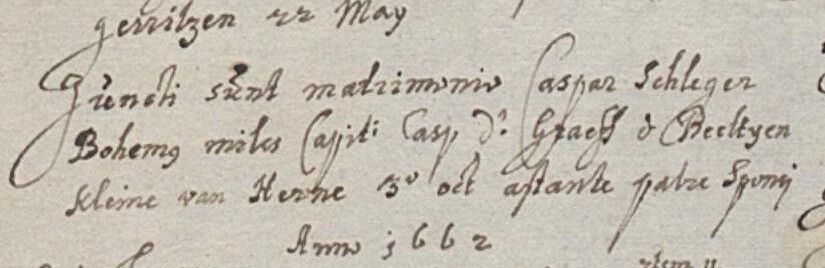 gerritzen 22 May
Juncti sunt matrimonio Caspar Schleger
Bohemus miles Capiti Casp d'. Graeff & Beeltyen
kleine van Herne 3° oct astante patre Sponsi
Anno 1662